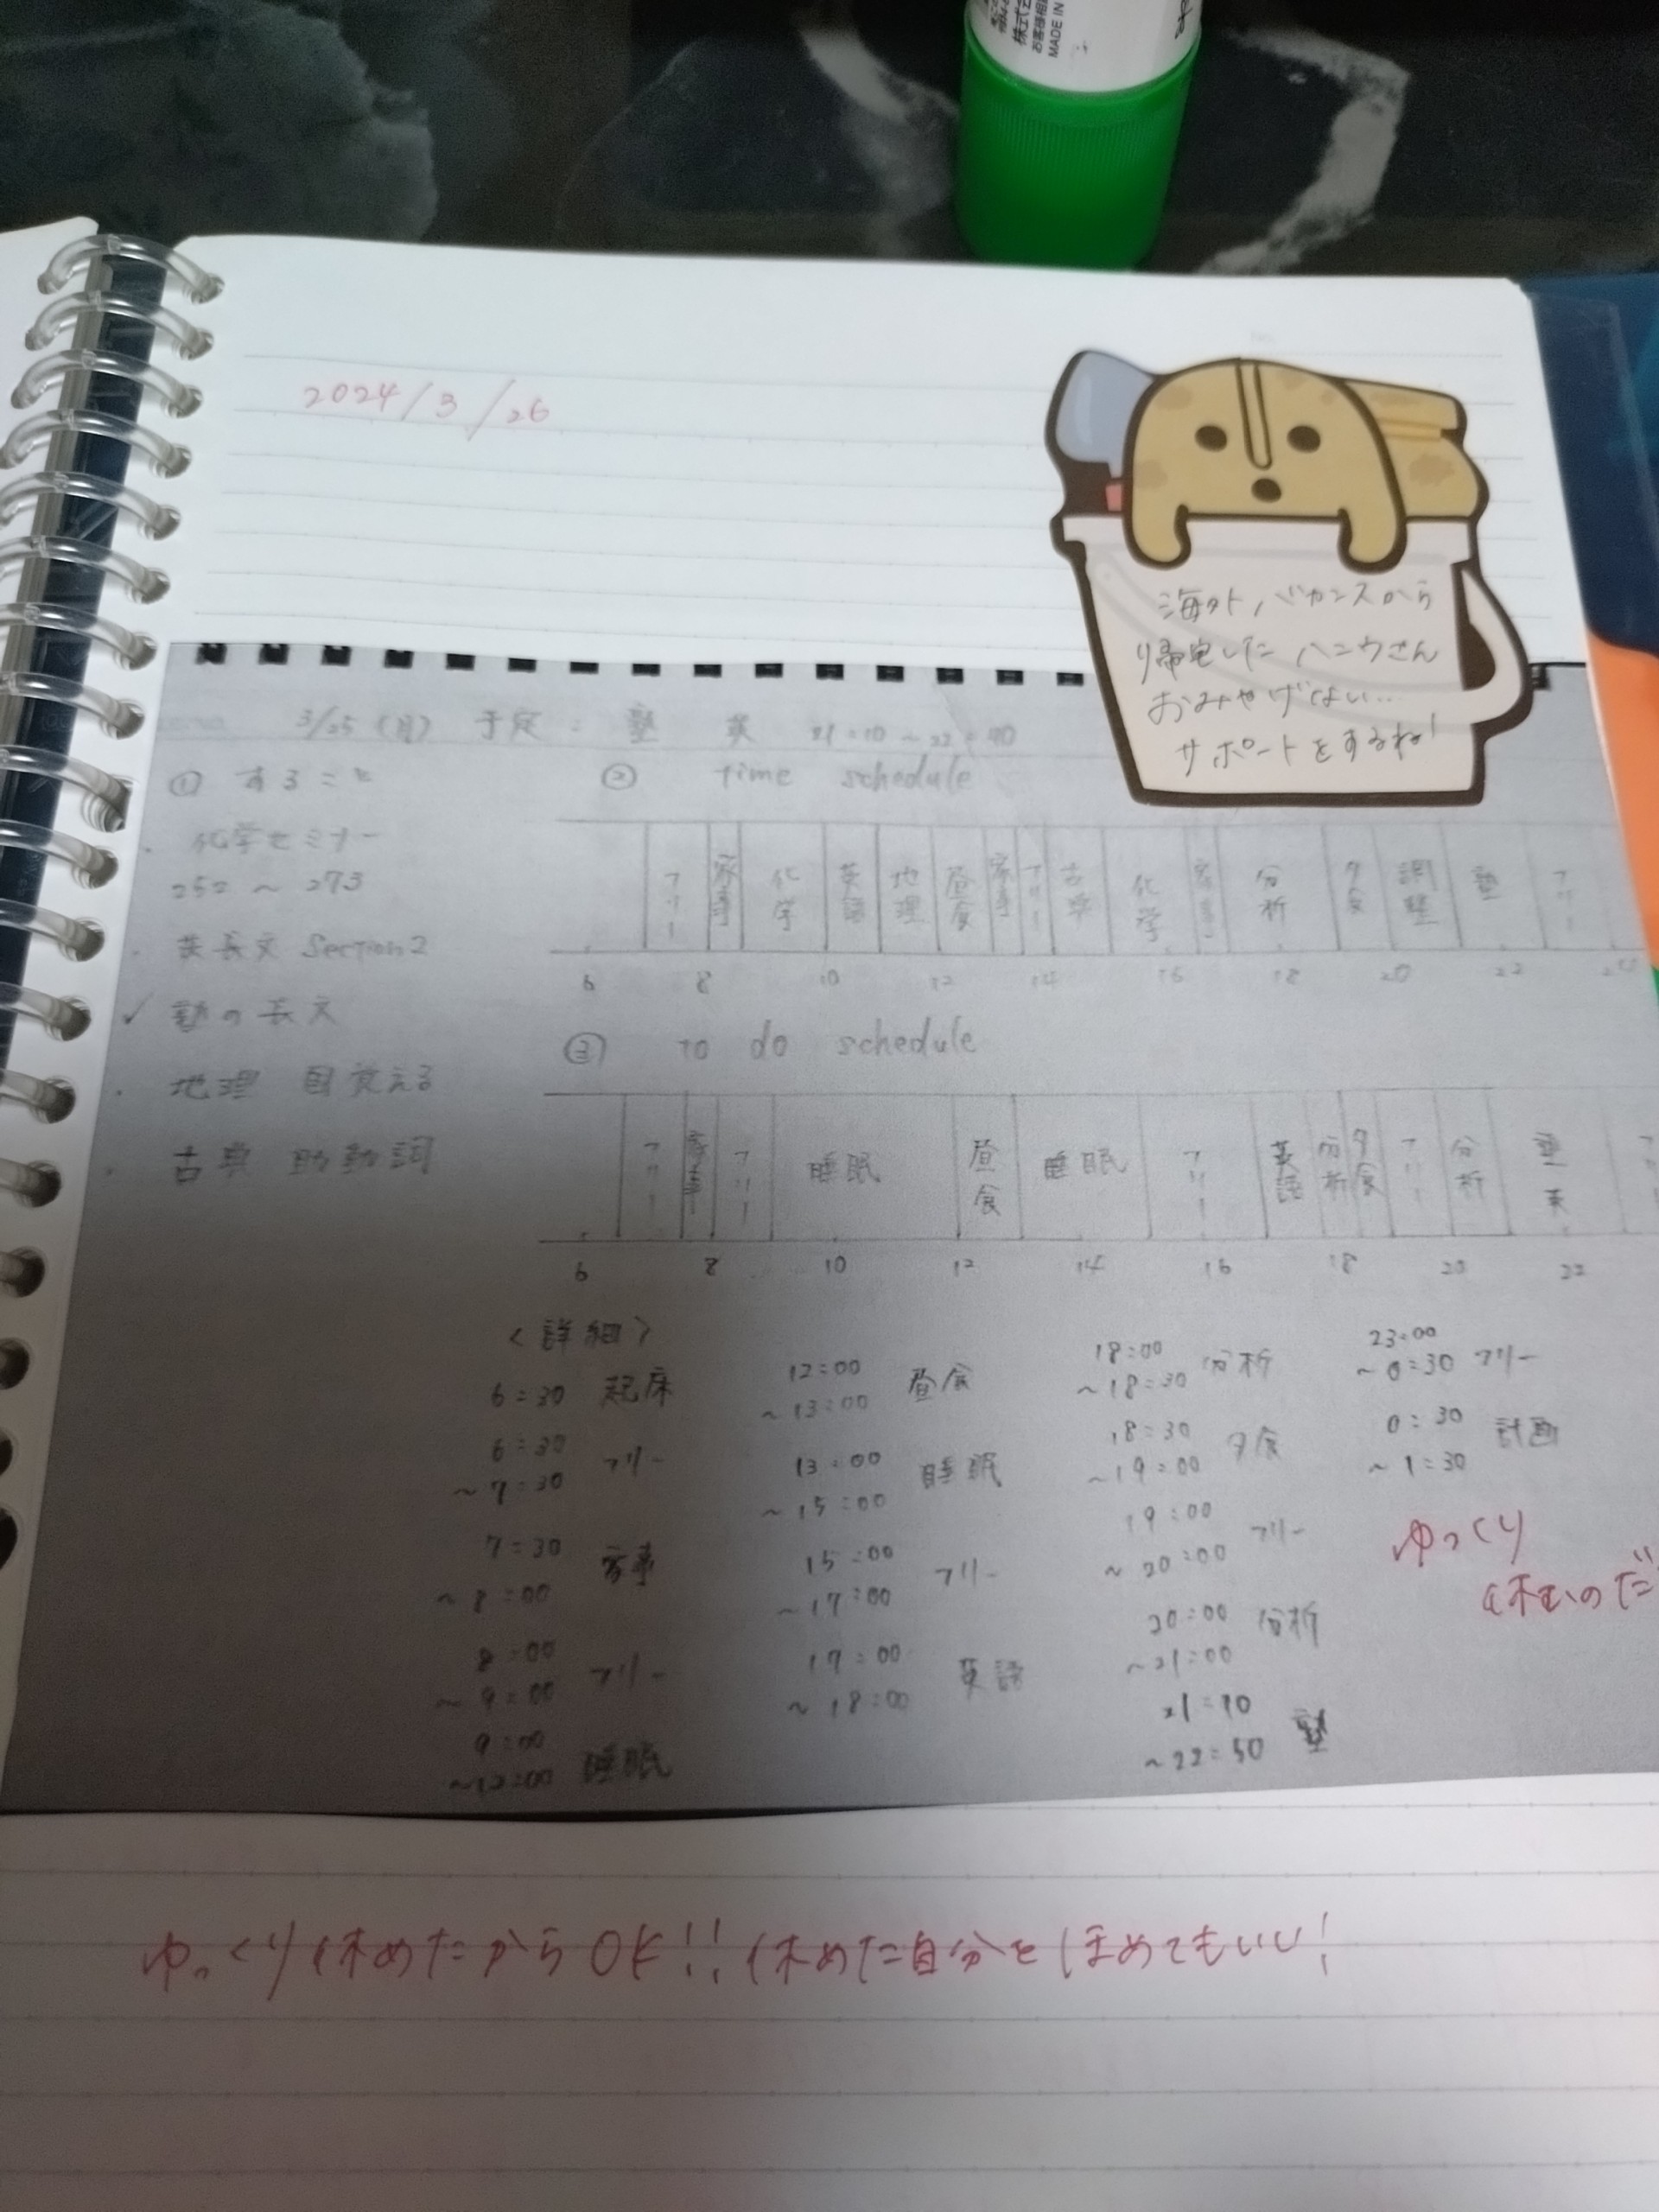 株式会
お客様相
MADE IN
2024/3/26
海外バカンスから
帰宅した ハニワさん
おみやげはい…
サポートをするね!
3/25 (月) 予定: 塾 英 21:10~22:40
① すること
・化学セミナー
252 ~ 273
・英長文 Section2
✓ 塾の長文
・地理 国覚える
・古典 助動詞
② Time schedule
フリー 家事 化学 英語 地理 昼食 家事 フリー 古典 化学 家事 分析 夕食 調整 塾 フリー
6 8 10 12 14 16 18 20 22
③ To do schedule
フリー 家事 フリー 睡眠 昼食 睡眠 フリー 英語 分析 夕食 フリー 分析 塾 英
6 8 10 12 14 16 18 20 22
<詳細>
6:30 起床
6:30
~7:30 フリー
7:30
~8:00 家事
8:00
~9:00 フリー
9:00
~12:00 睡眠
12:00
~13:00 昼食
13:00
~15:00 睡眠
15:00
~17:00 フリー
17:00
~18:00 英語
18:00
~18:30 分析
18:30
~19:00 夕食
19:00
~20:00 フリー
20:00
~21:00 分析
21:10
~22:50 塾
23:00
~0:30 フリー
0:30
~1:30 計画
ゆっくり
休むのだ
ゆっくり休めたからOK!! 休めた自分をほめてもいい!